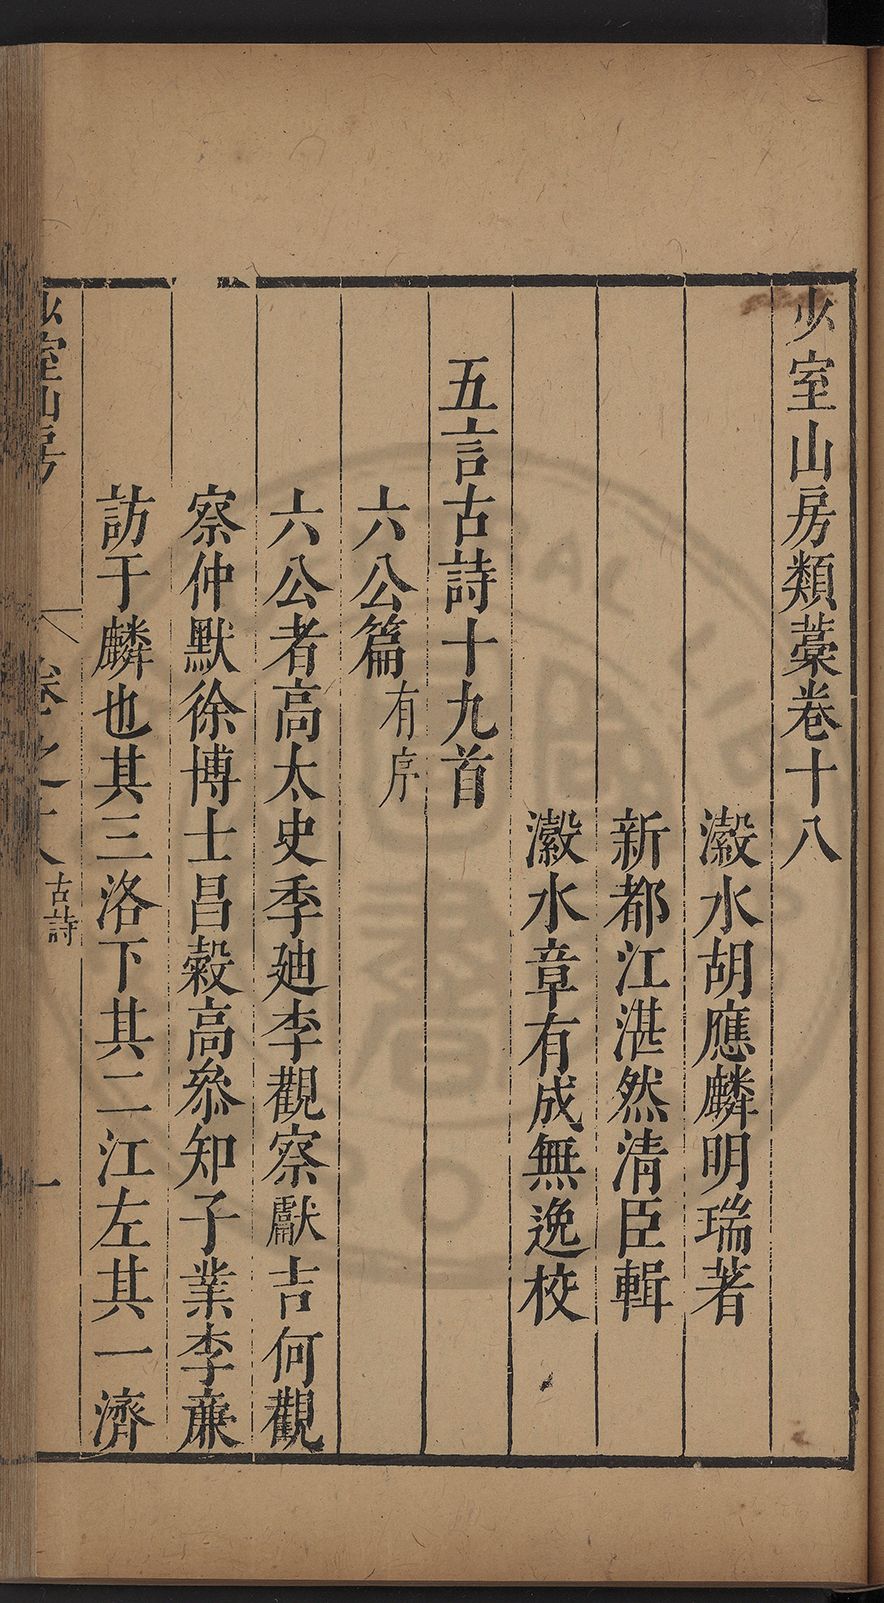 少室山房類藁卷十八
瀫水胡應麟明瑞著
新都江湛然清臣輯
瀫水章有成無逸校
五言古詩十九首
六公篇有序
六公者高太史季廸李觀察獻吉何觀
察仲默徐博士昌糓高叅知子業李亷
訪于麟也其三洛下其二江左其一濟
少室山房 卷之十八 古詩 一